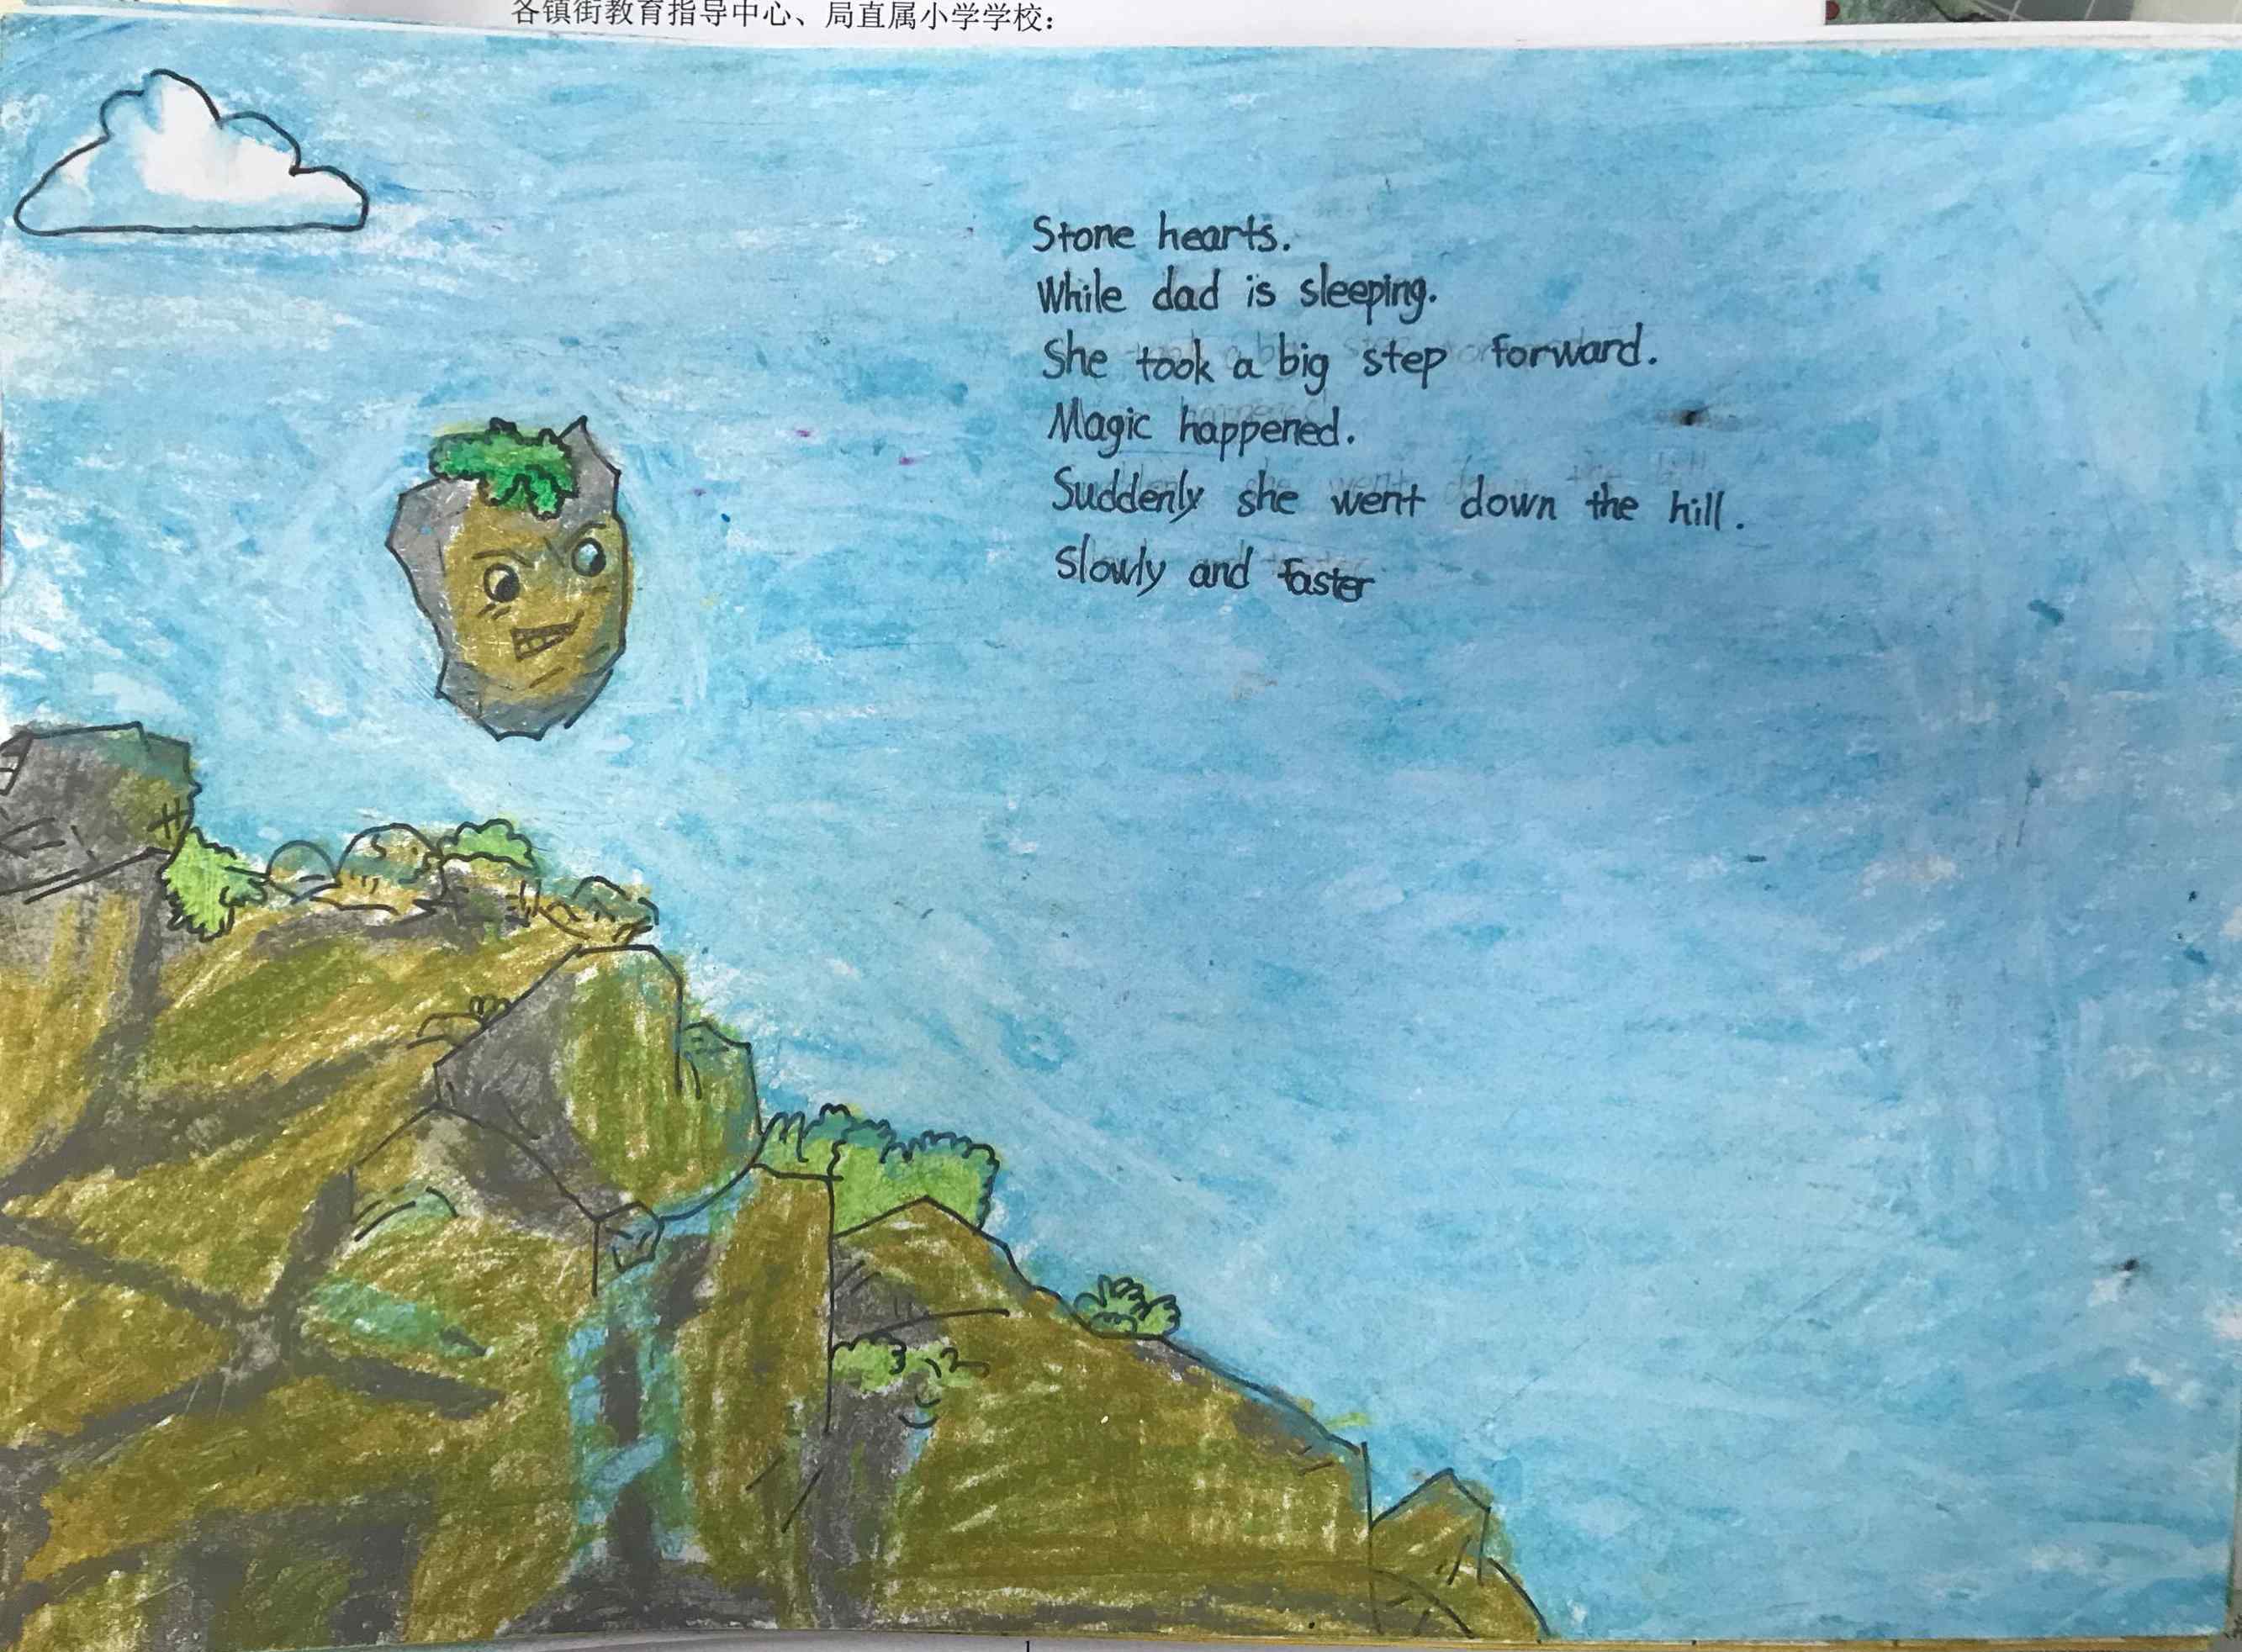 各镇街教育指导中心、局直属小学学校：
Stone hearts.
While dad is sleeping.
She took a big step forward.
Magic happened.
Suddenly she went down the hill.
Slowly and faster
1